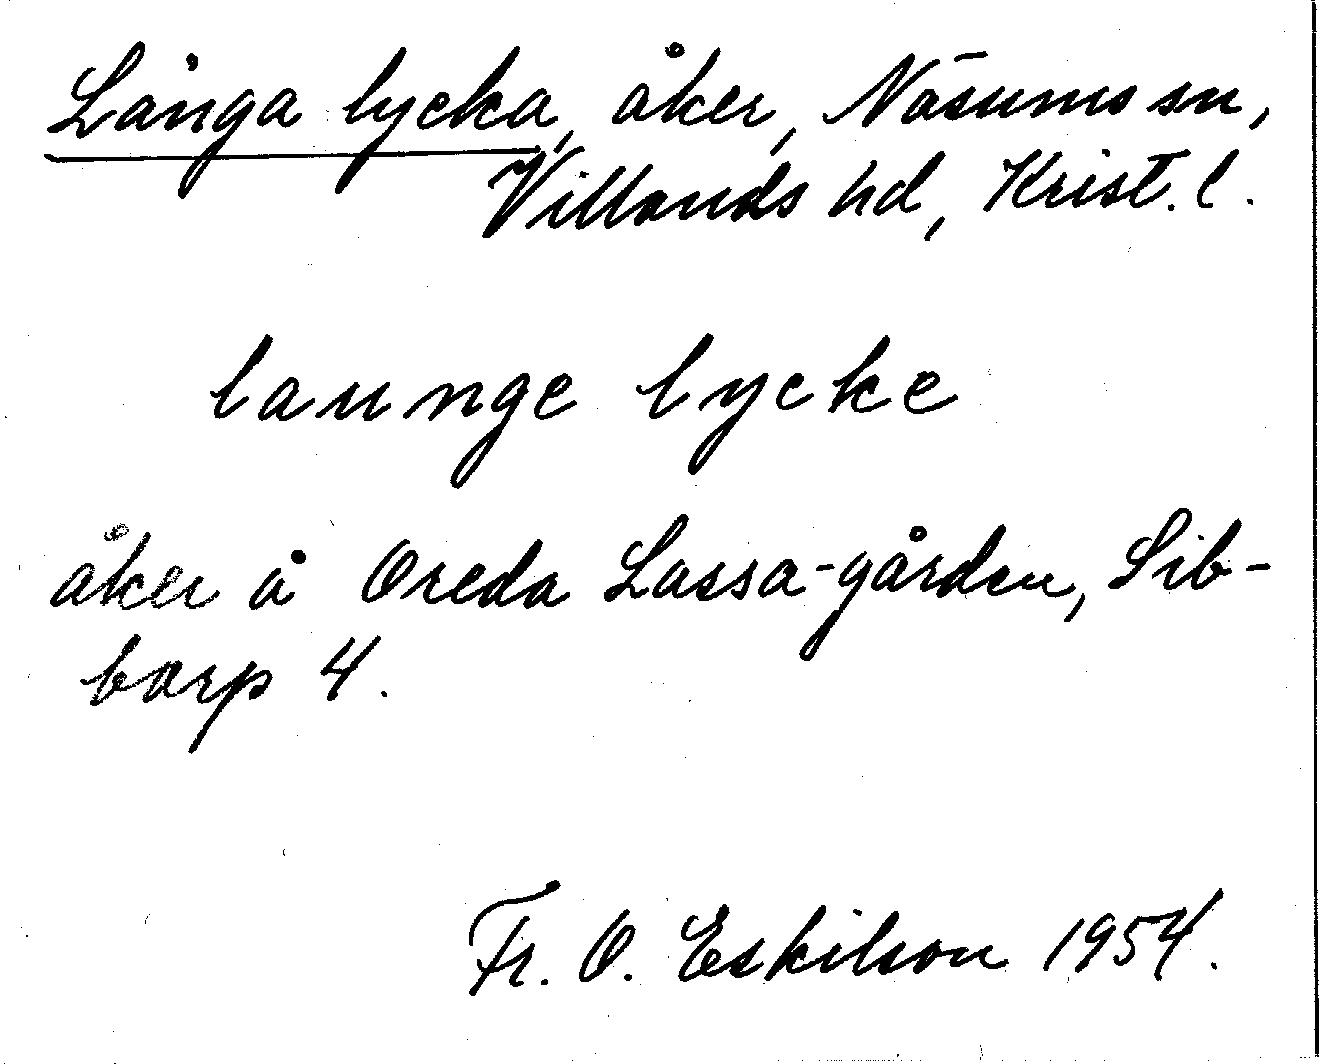 Långa lycka, åker, Näsums sn,
Villands hd, Krist. l.
launge lycke
åker å Oreda Lassa-gården, Sib-
barp 4.
Fr. O. Eskilson 1954.